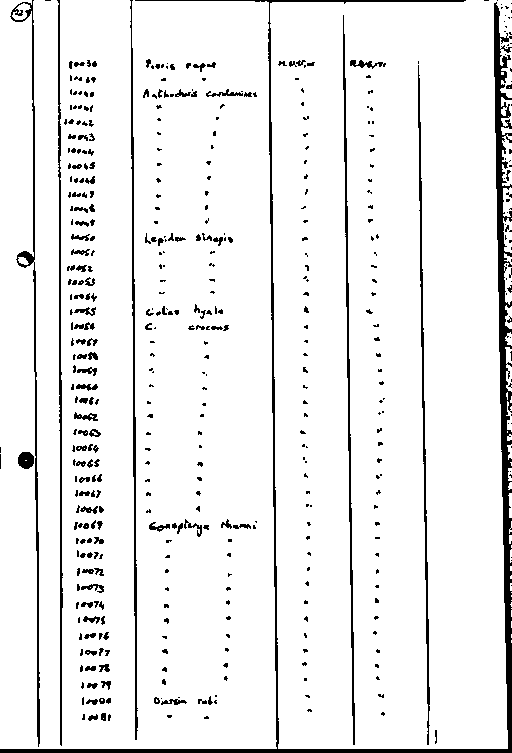 10038 Pieris rapae
10039 " "
10040 Anthocharis cardamines " "
10041 " " " "
10042 " " " "
10043 " " " "
10044 " " " "
10045 " " " "
10046 " " " "
10047 " " " "
10048 " " " "
10049 " " " "
10050 Lepidea Sinapis " "
10051 " " " "
10052 " " " "
10053 " " " "
10054 " " " "
10055 Colias hyale " "
10056 C. croceus " "
10057 " " " "
10058 " " " "
10059 " " " "
10060 " " " "
10061 " " " "
10062 " " " "
10063 " " " "
10064 " " " "
10065 " " " "
10066 " " " "
10067 " " " "
10068 " " " "
10069 Gonepteryx rhamni " "
10070 " " " "
10071 " " " "
10072 " " " "
10073 " " " "
10074 " " " "
10075 " " " "
10076 " " " "
10077 " " " "
10078 " " " "
10079 " " " "
10080 rubi " "
10081 " " " "